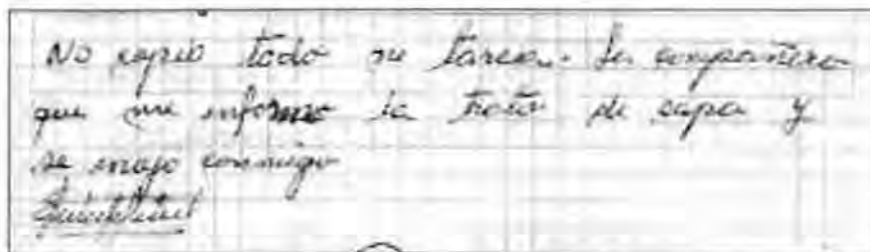 No copió todo su tarea. Su compañera
que me informo la trato de sapa y
se enojo conmigo